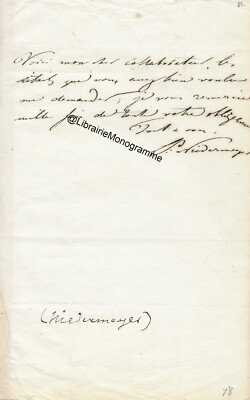 Voici mon cher collaborateur, les
détails que vous avez bien voulu
me demander, je vous remercie
mille fois de toute votre obligean
Tout a vous
@LibrairieMonogramme
L. Niedermeyer
(Niedermeyer)
78